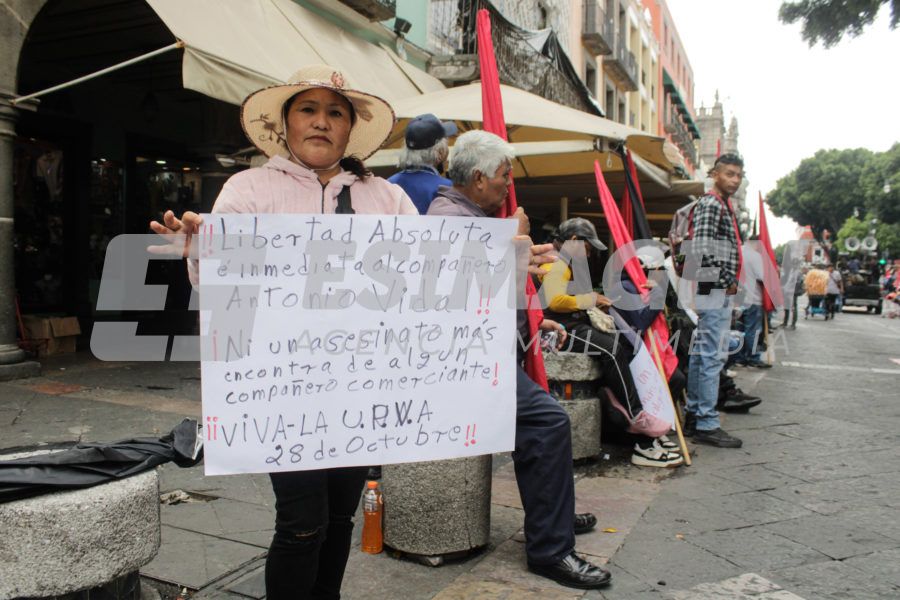 ¡¡Libertad Absoluta
é inmediata al compañero
Antonio Vidal!!
¡Ni un asesinato más
encontra de algun
compañero comerciante!
¡¡VIVA-LA U.P.V.A
28 de Octubre!!
ESIMAGEN
AGENCIA MULTIMEDIA